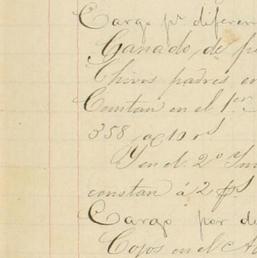 Cargo pr diferen
Ganado de pe
Chivos padres en
Constan en el 1er
358 a 10 rs
Y en el 2o In
constan á 2 ps
Cargo por de
Cojos en el A